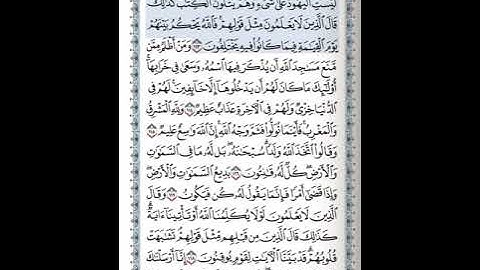 لَيْسَتِ الْيَهُودُ عَلَىٰ شَيْءٍ وَهُمْ يَتْلُونَ الْكِتَابَ كَذَٰلِكَ
قَالَ الَّذِينَ لَا يَعْلَمُونَ مِثْلَ قَوْلِهِمْ فَاللَّهُ يَحْكُمُ بَيْنَهُمْ
يَوْمَ الْقِيَامَةِ فِيمَا كَانُوا فِيهِ يَخْتَلِفُونَ ١١٣ وَمَنْ أَظْلَمُ مِمَّن
مَّنَعَ مَسَاجِدَ اللَّهِ أَن يُذْكَرَ فِيهَا اسْمُهُ وَسَعَىٰ فِي خَرَابِهَا
أُولَٰئِكَ مَا كَانَ لَهُمْ أَن يَدْخُلُوهَا إِلَّا خَائِفِينَ لَهُمْ فِي
الدُّنْيَا خِزْيٌ وَلَهُمْ فِي الْآخِرَةِ عَذَابٌ عَظِيمٌ ١١٤ وَلِلَّهِ الْمَشْرِقُ
وَالْمَغْرِبُ فَأَيْنَمَا تُوَلُّوا فَثَمَّ وَجْهُ اللَّهِ إِنَّ اللَّهَ وَاسِعٌ عَلِيمٌ ١١٥
وَقَالُوا اتَّخَذَ اللَّهُ وَلَدًا سُبْحَانَهُ بَل لَّهُ مَا فِي السَّمَاوَاتِ
وَالْأَرْضِ كُلٌّ لَّهُ قَانِتُونَ ١١٦ بَدِيعُ السَّمَاوَاتِ وَالْأَرْضِ
وَإِذَا قَضَىٰ أَمْرًا فَإِنَّمَا يَقُولُ لَهُ كُن فَيَكُونُ ١١٧ وَقَالَ
الَّذِينَ لَا يَعْلَمُونَ لَوْلَا يُكَلِّمُنَا اللَّهُ أَوْ تَأْتِينَا آيَةٌ
كَذَٰلِكَ قَالَ الَّذِينَ مِن قَبْلِهِم مِّثْلَ قَوْلِهِمْ تَشَابَهَتْ
قُلُوبُهُمْ قَدْ بَيَّنَّا الْآيَاتِ لِقَوْمٍ يُوقِنُونَ ١١٨ إِنَّا أَرْسَلْنَاكَ